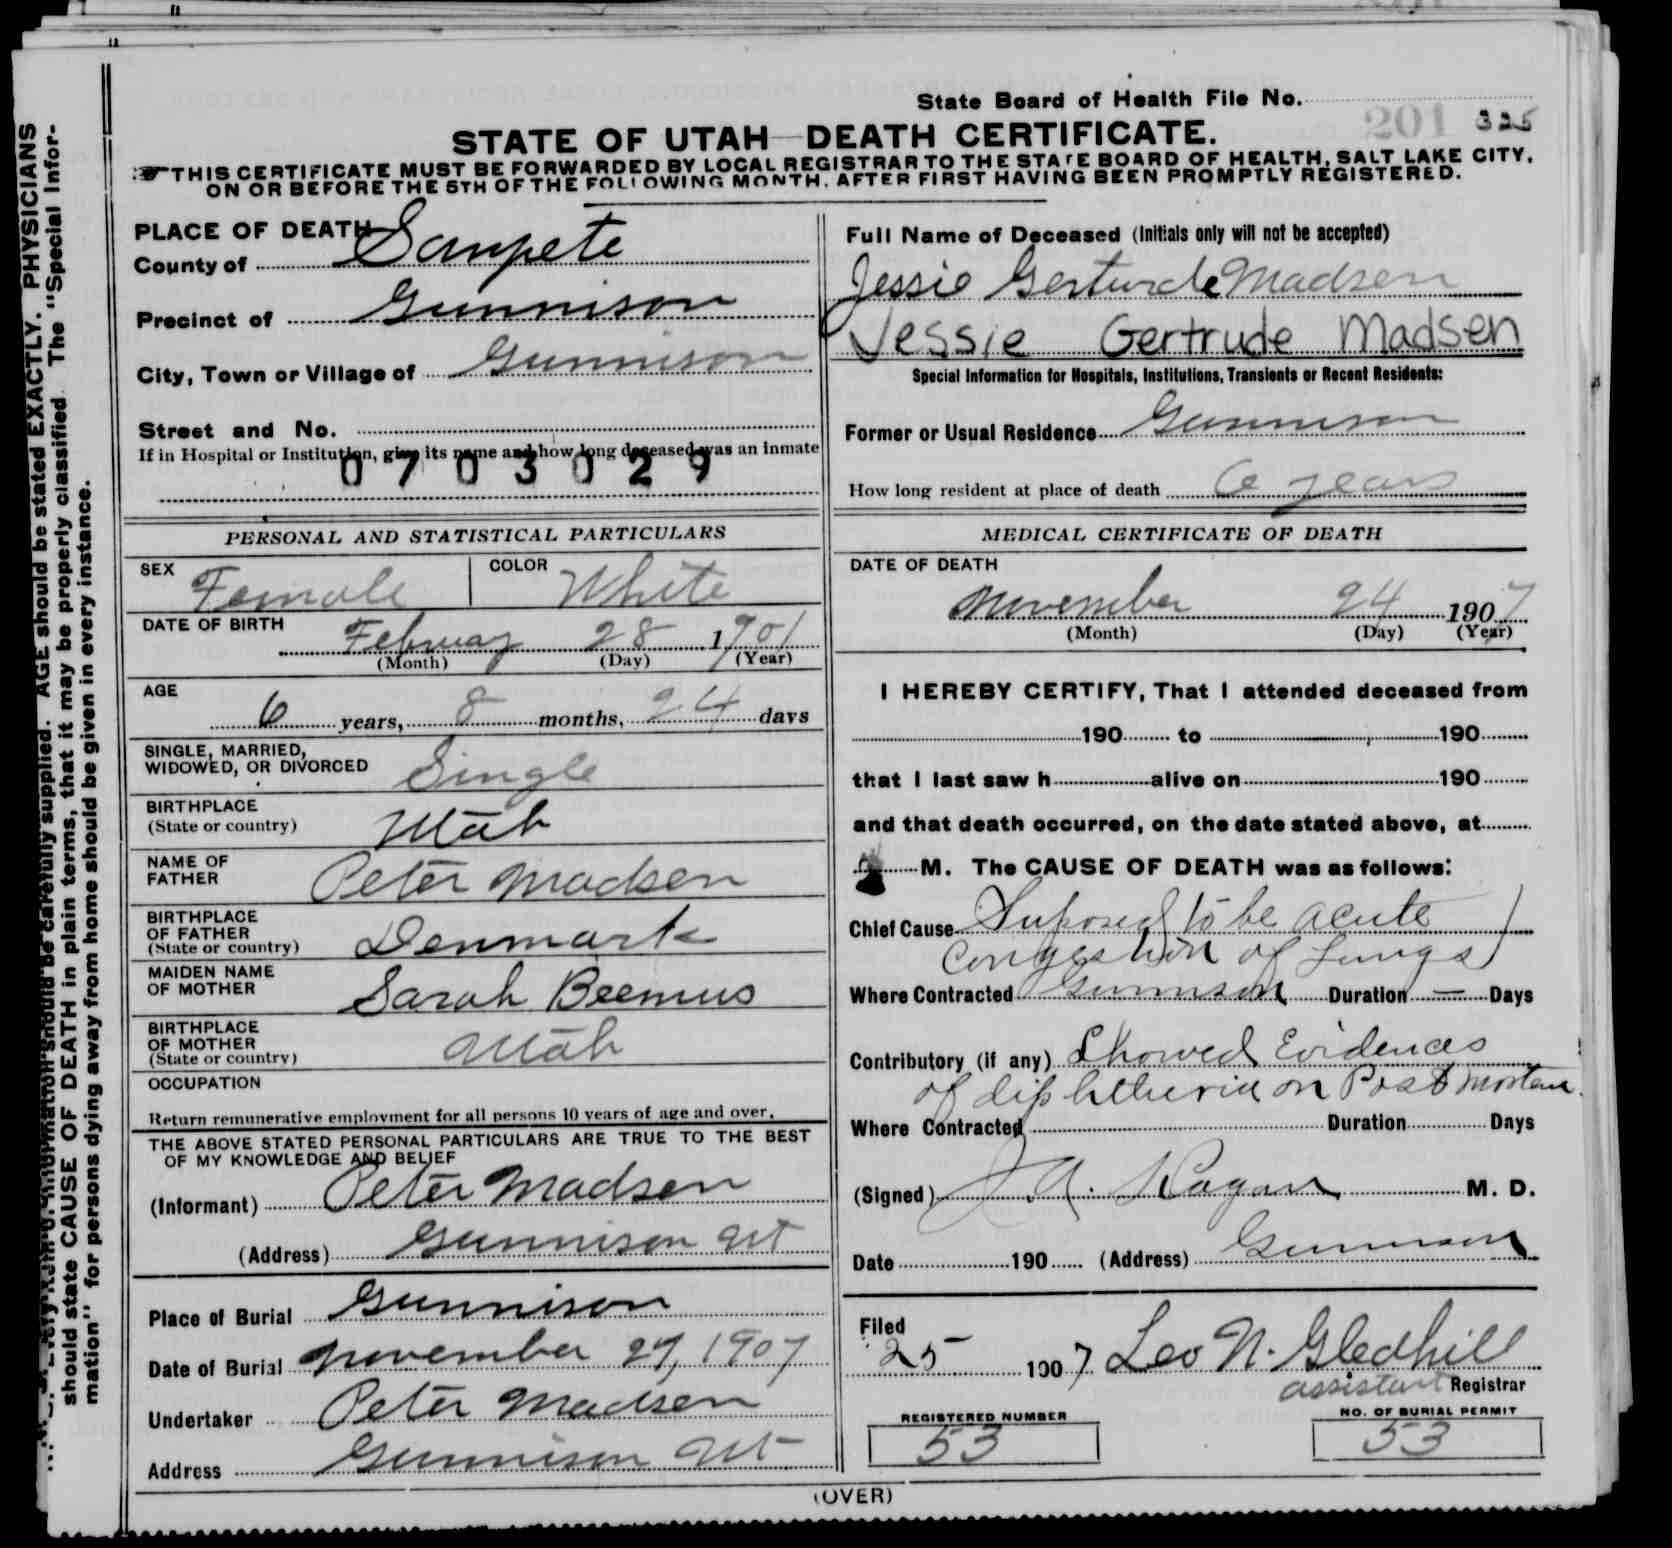 State Board of Health File No. 201 325
STATE OF UTAH—DEATH CERTIFICATE.
THIS CERTIFICATE MUST BE FORWARDED BY LOCAL REGISTRAR TO THE STATE BOARD OF HEALTH, SALT LAKE CITY,
ON OR BEFORE THE 5TH OF THE FOLLOWING MONTH, AFTER FIRST HAVING BEEN PROMPTLY REGISTERED.
PLACE OF DEATH
County of Sanpete
Precinct of Gunnison
City, Town or Village of Gunnison
Street and No.
If in Hospital or Institution, give its name and how long deceased was an inmate
0703029
PERSONAL AND STATISTICAL PARTICULARS
SEX Female COLOR White
DATE OF BIRTH
February 28 1901
(Month) (Day) (Year)
AGE
6 years, 8 months, 24 days
SINGLE, MARRIED,
WIDOWED, OR DIVORCED Single
BIRTHPLACE
(State or country) Utah
NAME OF
FATHER Peter Madsen
BIRTHPLACE
OF FATHER
(State or country) Denmark
MAIDEN NAME
OF MOTHER Sarah Beemus
BIRTHPLACE
OF MOTHER
(State or country) Utah
OCCUPATION
Return remunerative employment for all persons 10 years of age and over.
THE ABOVE STATED PERSONAL PARTICULARS ARE TRUE TO THE BEST
OF MY KNOWLEDGE AND BELIEF
(Informant) Peter Madsen
(Address) Gunnison Ut
Place of Burial Gunnison
Date of Burial November 27, 1907
Undertaker Peter Madsen
Address Gunnison Ut
Full Name of Deceased (Initials only will not be accepted)
Jessie Gerturde Madsen
Jessie Gertrude Madsen
Special Information for Hospitals, Institutions, Transients or Recent Residents:
Former or Usual Residence Gunnison
How long resident at place of death 6 years
MEDICAL CERTIFICATE OF DEATH
DATE OF DEATH
November 24 1907
(Month) (Day) (Year)
I HEREBY CERTIFY, That I attended deceased from
190 to 190
that I last saw h alive on 190
and that death occurred, on the date stated above, at
M. The CAUSE OF DEATH was as follows:
Chief Cause Suposed to be acute
Congestion of Lungs
Where Contracted Gunnison Duration — Days
Contributory (if any) Showed Evidences
of diphtheria on Post mortem.
Where Contracted Duration Days
(Signed) J. A. Hagan M. D.
Date 190 (Address) Gunnison
Filed
25 1907 Leo N. Gledhill
assistant Registrar
REGISTERED NUMBER NO. OF BURIAL PERMIT
53 53
(OVER)
should be carefully supplied. AGE should be stated EXACTLY. PHYSICIANS
should state CAUSE OF DEATH in plain terms, that it may be properly classified. The "Special Infor-
mation" for persons dying away from home should be given in every instance.